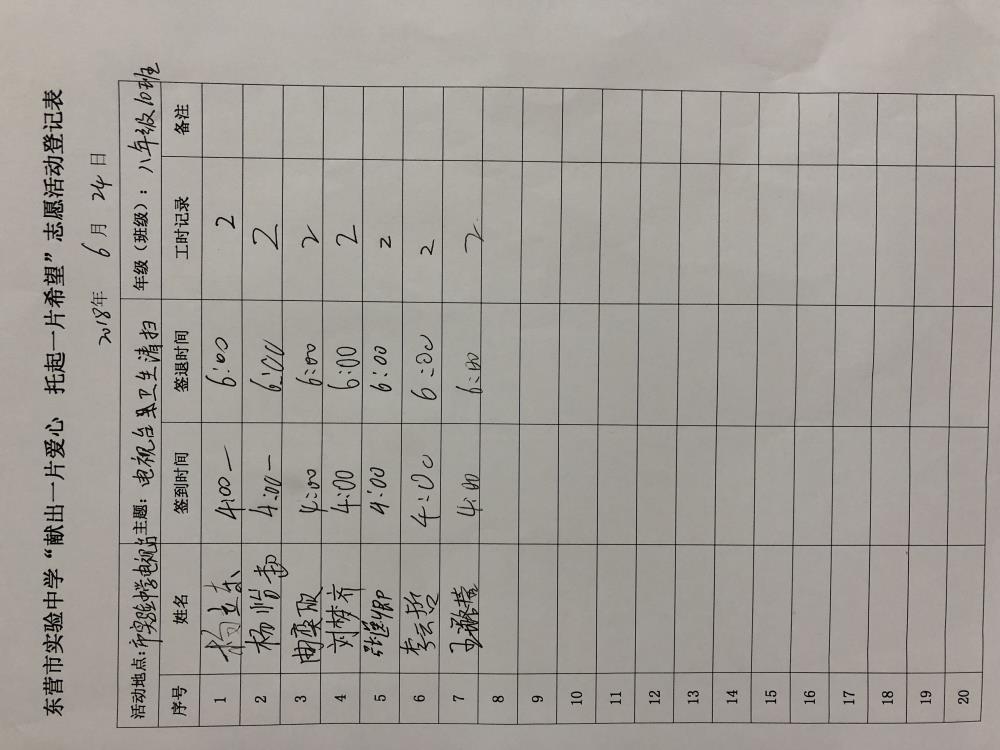 东营市实验中学“献出一片爱心 托起一片希望”志愿活动登记表
2018年 6 月 24 日
活动地点：市实验中学电视台 主题：电视台卫生清扫 年级（班级）：八年级10班
序号 姓名 签到时间 签退时间 工时记录 备注
1 4:00 6:00 2
2 杨 4:00 6:00 2
3 曲奕 4:00 6:00 2
4 刘梦齐 4:00 6:00 2
5 张 4:00 6:00 2
6 李云哲 4:00 6:00 2
7 王 4:00 6:00 2
8
9
10
11
12
13
14
15
16
17
18
19
20